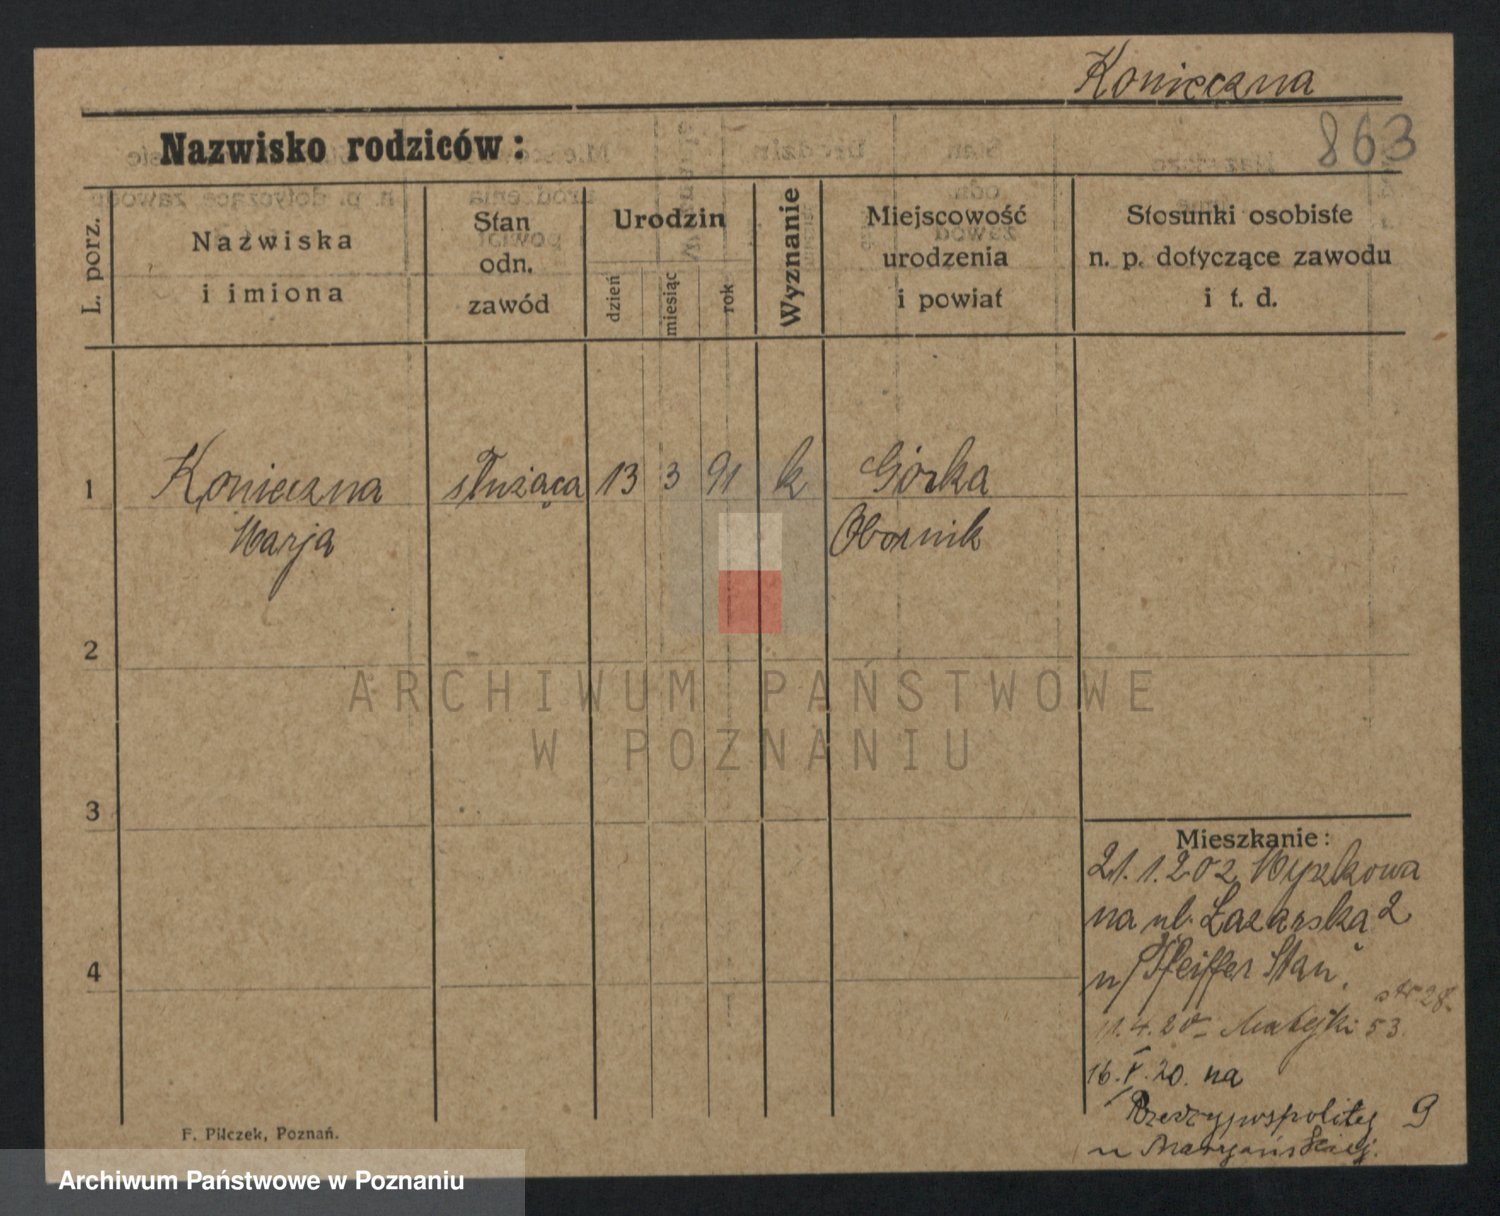 Konieczna
863
Nazwisko rodziców:
L. porz.
Nazwiska
i imiona
Stan
odn.
zawód
Urodzin
dzień
miesiąc
rok
Wyznanie
Miejscowość
urodzenia
i powiat
Stosunki osobiste
n. p. dotyczące zawodu
i t. d.
1 Konieczna służąca 13 3 91 k Górka
Marja Obornik
2
ARCHIWUM PAŃSTWOWE
W POZNANIU
3
4
Mieszkanie:
21.1.20 z Wyszkowa
na ul. Łazarska 2
u Pfeiffer Stan.
str 28.
11.4.20 Matejki 53.
16.V.20. na
Rzeczypospolitej 9
u Maryańskiej.
F. Pilczek, Poznań.
Archiwum Państwowe w Poznaniu